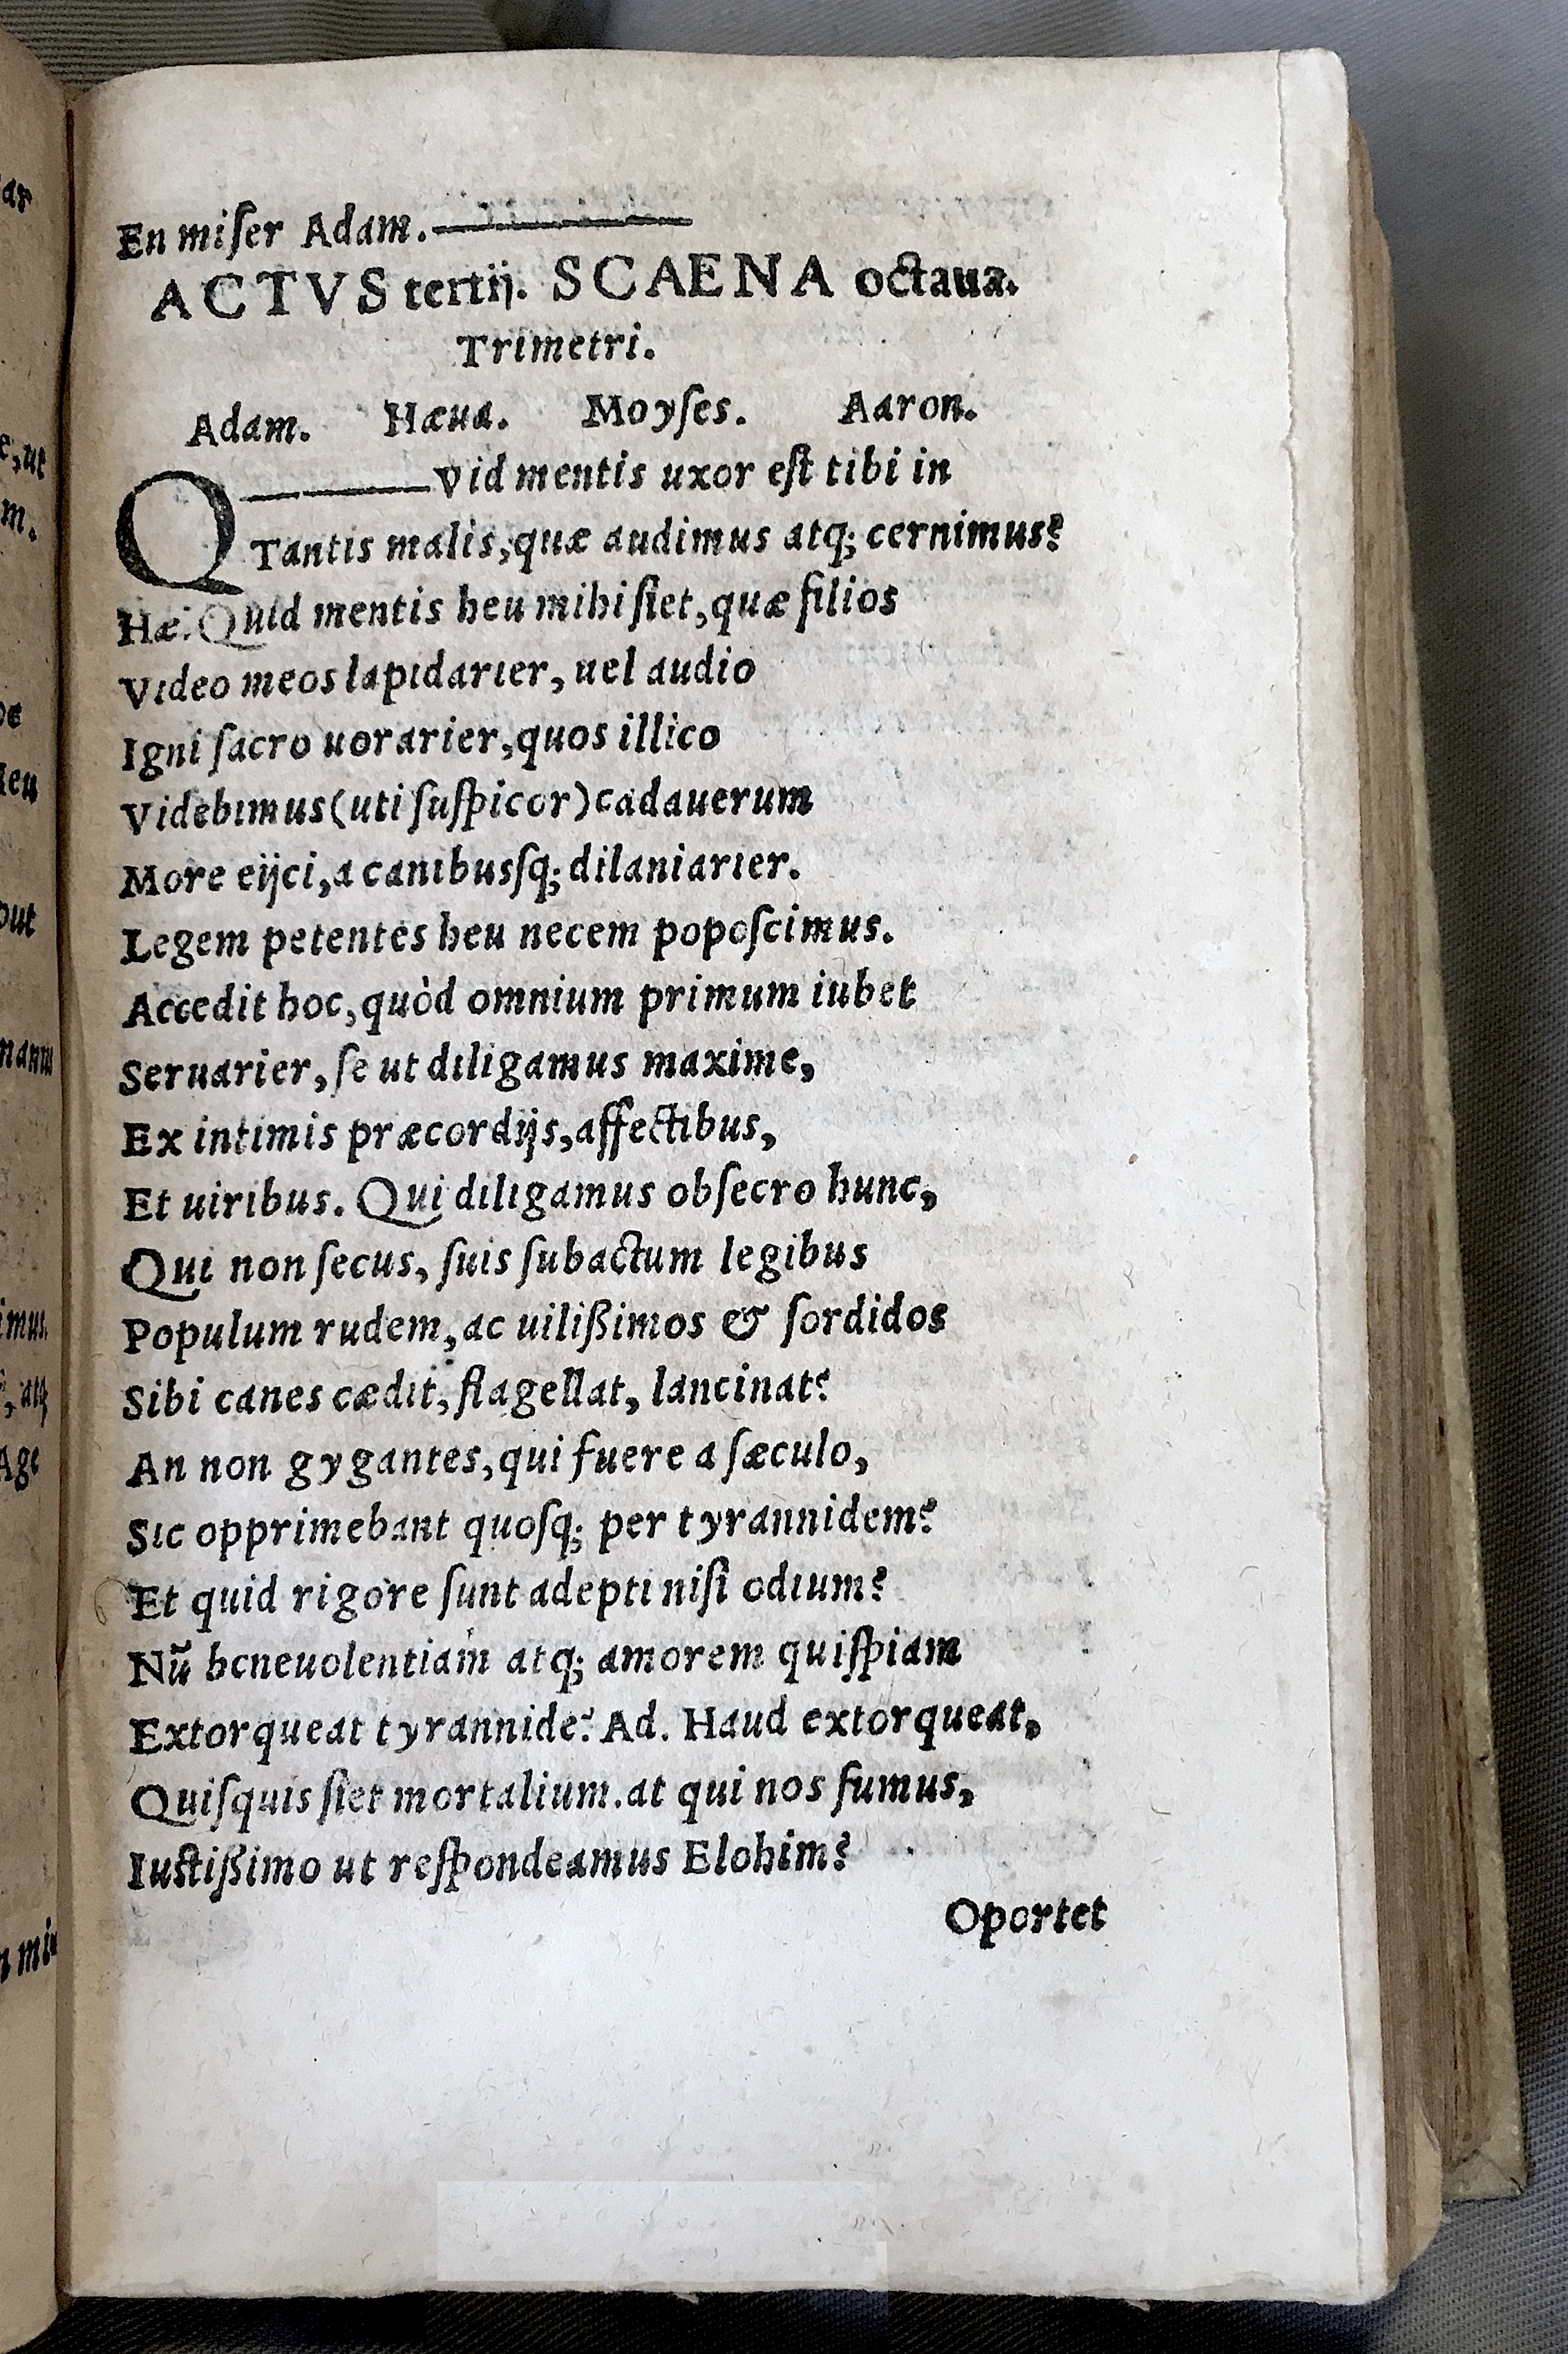 En miſer Adam.
ACTVS tertij. SCAENA octaua.
Trimetri.
Adam. Hæua. Moyſes. Aaron.
Qvid mentis uxor eſt tibi in
Tantis malis, quæ audimus atq; cernimus?
Hæ. Quid mentis heu mihi ſiet, quæ filios
Video meos lapidarier, uel audio
Igni ſacro uorarier, quos illico
Videbimus (uti ſuſpicor) cadauerum
More eijci, a canibusſq; dilaniarier.
Legem petentes heu necem popoſcimus.
Accedit hoc, quòd omnium primum iubet
Seruarier, ſe ut diligamus maxime,
Ex intimis præcordijs, affectibus,
Et uiribus. Qui diligamus obſecro hunc,
Qui non ſecus, ſuis ſubactum legibus
Populum rudem, ac uilißimos & ſordidos
Sibi canes cædit, flagellat, lancinat?
An non gygantes, qui fuere a ſæculo,
Sic opprimebant quoſq; per tyrannidem?
Et quid rigore ſunt adepti niſi odium?
Nũ beneuolentiam atq; amorem quiſpiam
Extorqueat tyrannide? Ad. Haud extorqueat,
Quiſquis ſiet mortalium. at qui nos ſumus,
Iuſtißimo ut reſpondeamus Elohim?
Oportet